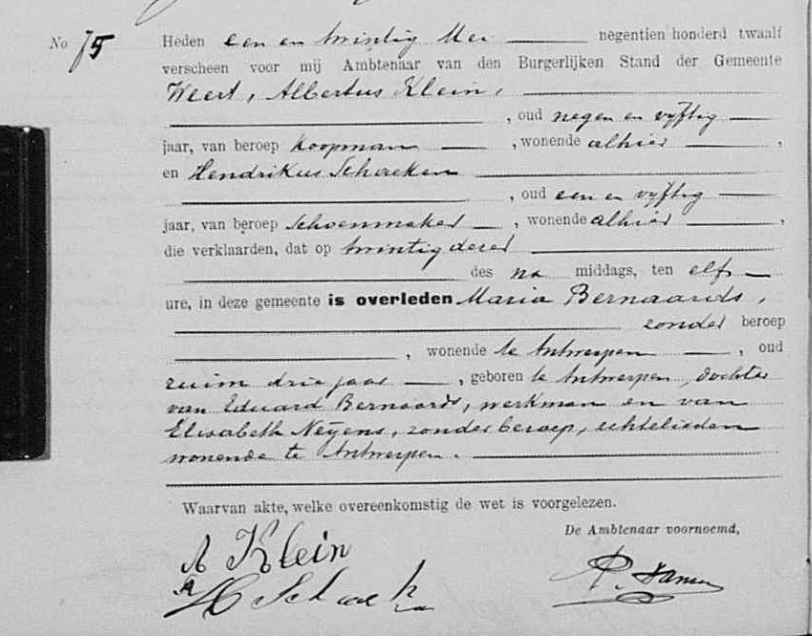 No 75 Heden een en twintig Mei negentien honderd twaalf
verscheen voor mij Ambtenaar van den Burgerlijken Stand der Gemeente
Weert, Albertus Klein,
, oud negen en vijftig
jaar, van beroep koopman , wonende alhier ,
en Hendrikus Schaeken
, oud een en vijftig
jaar, van beroep schoenmaker , wonende alhier ,
die verklaarden, dat op twintig dezer
des na middags, ten elf
ure, in deze gemeente is overleden Maria Bernaards,
zonder beroep
, wonende te Antwerpen , oud
ruim drie jaar , geboren te Antwerpen, dochter
van Eduard Bernaards, werkman en van
Elisabeth Neyens, zonder beroep, echtelieden
wonende te Antwerpen.
Waarvan akte, welke overeenkomstig de wet is voorgelezen.
De Ambtenaar voornoemd,
A Klein
H Schaeken